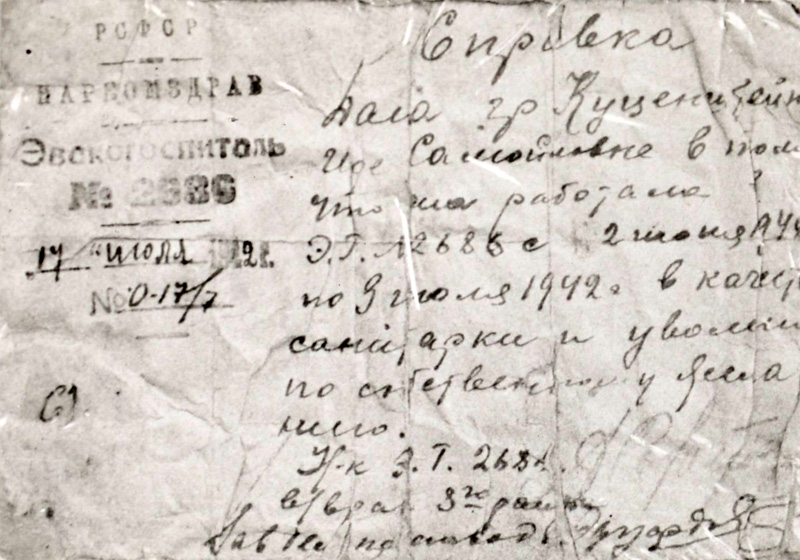 РСФСР
НАРКОМЗДРАВ
Эвокогоспиталь
№ 2686
17 июля 1942г.
№ 0-17/7
Справка
Дана гр Куценштейн
Иде Самойловне в том
что она работала в
Э.Г. №2686 с 2 июня 194
по 9 июля 1942г в качес
санитарки и уволин
по собственному жела
нию.
Н-к Э.Г. 268
в/врач 3го ранга